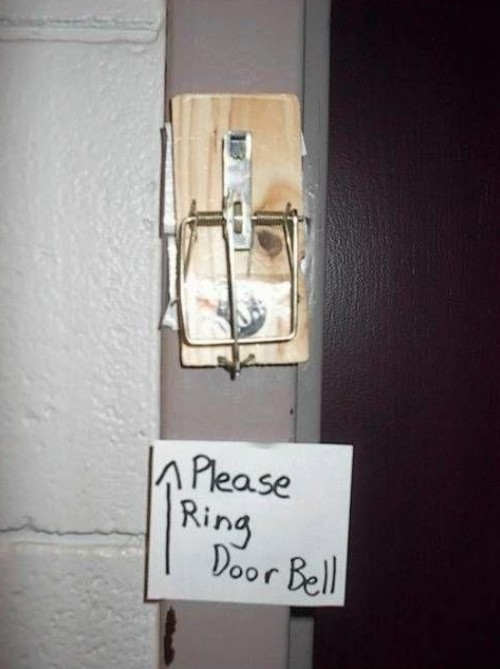 Please
Ring
Door Bell